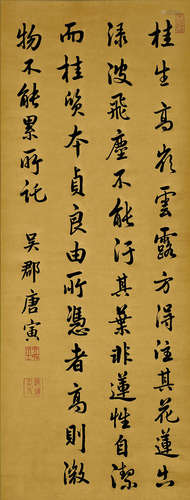 桂生高嶺雲露方得注其花蓮出
渌波飛塵不能汙其葉非蓮性自潔
而桂質本貞良由所憑者高則微
物不能累所託
吳郡唐寅